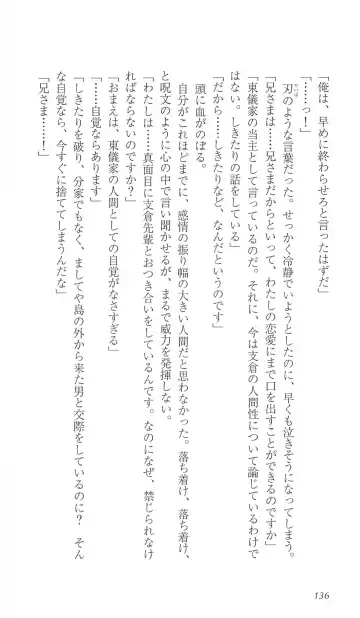 「俺は、早めに終わらせろと言ったはずだ」
「……っ！」
刃のような言葉だった。せっかく冷静でいようとしたのに、早くも泣きそうになってしまう。
「兄さまは……兄さまだからといって、わたしの恋愛にまで口を出すことができるのですか」
「東儀家の当主として言っているのだ。それに、今は支倉の人間性について論じているわけで
はない。しきたりの話をしている」
「だから……しきたりなど、なんだというのです」
頭に血がのぼる。
自分がこれほどまでに、感情の振り幅の大きい人間だと思わなかった。落ち着け、落ち着け、
と呪文のように心の中で言い聞かせるが、まるで威力を発揮しない。
「わたしは……真面目に支倉先輩とおつき合いをしているんです。なのになぜ、禁じられなけ
ればならないのですか？」
「おまえは、東儀家の人間としての自覚がなさすぎる」
「……自覚ならあります」
「しきたりを破り、分家でもなく、ましてや島の外から来た男と交際をしているのに？　そん
な自覚なら、今すぐに捨ててしまうんだな」
「兄さま……！」
136